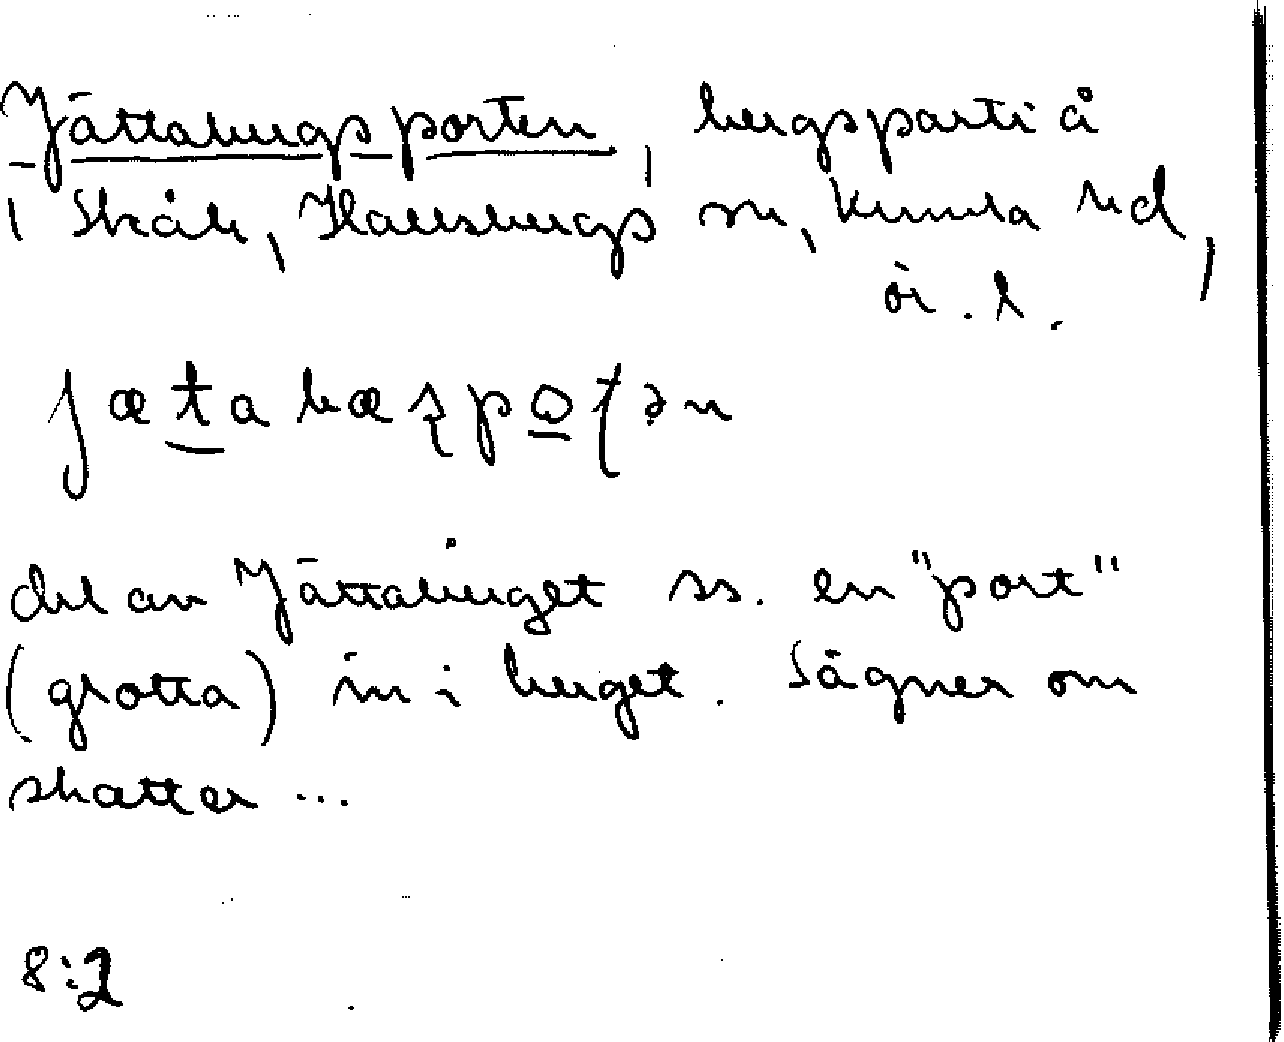 Jättabergsporten, bergsparti å
Skåle, Hallsbergs sn, Kumla hd,
ör. l.
jætabæʂpoʈən
del av Jättaberget ss. en "port"
(grotta) in i berget. Sägner om
skatter ...
8:2